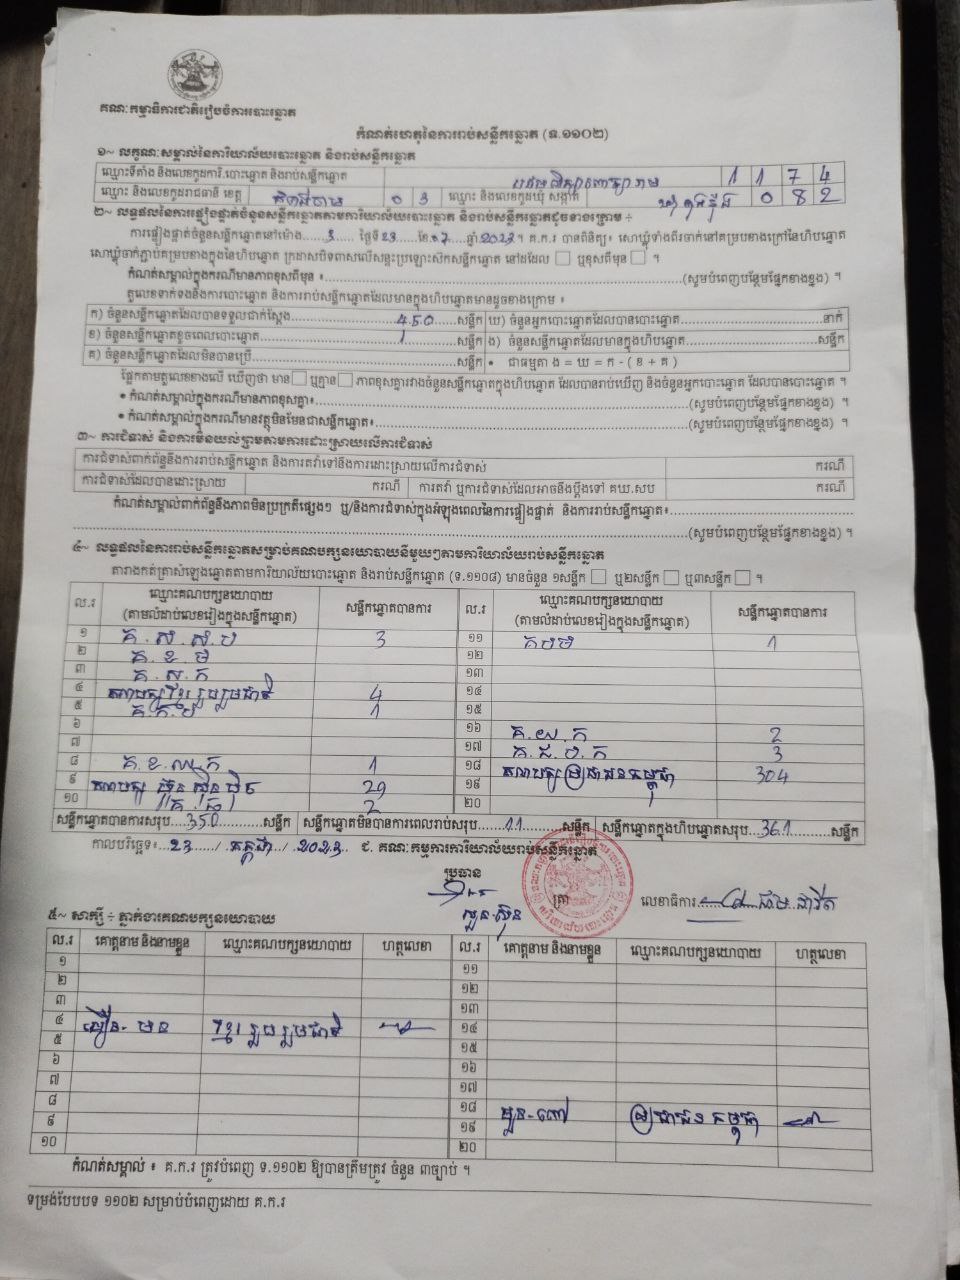 គណៈកម្មាធិការជាតិរៀបចំការបោះឆ្នោត
កំណត់ហេតុនៃការរាប់សន្លឹកឆ្នោត (ទ.១១០២)
១~ លក្ខណៈសម្គាល់នៃការិយាល័យបោះឆ្នោត និងរាប់សន្លឹកឆ្នោត
ឈ្មោះទីតាំង និងលេខកូដការិ.បោះឆ្នោត និងរាប់សន្លឹកឆ្នោត 1 1 7 4
ឈ្មោះ និងលេខកូដរាជធានី ខេត្ត កំពង់ចាម 0 3 ឈ្មោះ និងលេខកូដឃុំ សង្កាត់ 0 8 2
២~ លទ្ធផលនៃការផ្ទៀងផ្ទាត់ចំនួនសន្លឹកឆ្នោតតាមការិយាល័យបោះឆ្នោត និងរាប់សន្លឹកឆ្នោតដូចខាងក្រោម ÷
ការផ្ទៀងផ្ទាត់ចំនួនសន្លឹកឆ្នោតនៅម៉ោង....3.... ថ្ងៃទី 23 ខែ 07 ឆ្នាំ 2023 ។ គ.ក.រ បានពិនិត្យ៖ សោឃ្លុំទាំងពីរចាក់នៅគម្របខាងក្រៅនៃហិបឆ្នោត
សោឃ្លុំចាក់ភ្ជាប់គម្របខាងក្នុងនៃហិបឆ្នោត ក្រដាសបិទពាសលើសន្ទះប្រឡោះស៊កសន្លឹកឆ្នោត នៅដដែល ☐ ឬខុសពីមុន ☐ ។
កំណត់សម្គាល់ក្នុងករណីមានភាពខុសពីមុន ៖ (សូមបំពេញបន្ថែមផ្នែកខាងខ្នង) ។
តួលេខទាក់ទងនឹងការបោះឆ្នោត និងការរាប់សន្លឹកឆ្នោតដែលមានក្នុងហិបឆ្នោតមានដូចខាងក្រោម ៖
ក) ចំនួនសន្លឹកឆ្នោតដែលបានទទួលជាក់ស្តែង 450 សន្លឹក ឃ) ចំនួនអ្នកបោះឆ្នោតដែលបានបោះឆ្នោត នាក់
ខ) ចំនួនសន្លឹកឆ្នោតខូចពេលបោះឆ្នោត 1 សន្លឹក ង) ចំនួនសន្លឹកឆ្នោតដែលមានក្នុងហិបឆ្នោត សន្លឹក
គ) ចំនួនសន្លឹកឆ្នោតដែលមិនបានប្រើ សន្លឹក • ជាធម្មតា ង = ឃ = ក - ( ខ + គ )
ផ្អែកតាមតួលេខខាងលើ ឃើញថា មាន ☐ ឬគ្មាន ☐ ភាពខុសគ្នារវាងចំនួនសន្លឹកឆ្នោតក្នុងហិបឆ្នោត ដែលបានរាប់ឃើញ និងចំនួនអ្នកបោះឆ្នោត ដែលបានបោះឆ្នោត ។
• កំណត់សម្គាល់ក្នុងករណីមានភាពខុសគ្នា៖ (សូមបំពេញបន្ថែមផ្នែកខាងខ្នង) ។
• កំណត់សម្គាល់ក្នុងករណីមានវត្ថុមិនមែនជាសន្លឹកឆ្នោត៖ (សូមបំពេញបន្ថែមផ្នែកខាងខ្នង) ។
៣~ ការជំទាស់ និងការមិនយល់ព្រមតាមការដោះស្រាយលើការជំទាស់
ការជំទាស់ពាក់ព័ន្ធនឹងការរាប់សន្លឹកឆ្នោត និងការតវ៉ាទៅនឹងការដោះស្រាយលើការជំទាស់ ករណី
ការជំទាស់ដែលបានដោះស្រាយ ករណី ការតវ៉ា ឬការជំទាស់ដែលអាចនឹងប្តឹងទៅ គឃ.សប ករណី
កំណត់សម្គាល់ពាក់ព័ន្ធនឹងភាពមិនប្រក្រតីផ្សេងៗ ឬ/និងការជំទាស់ក្នុងអំឡុងពេលនៃការផ្ទៀងផ្ទាត់ និងការរាប់សន្លឹកឆ្នោត៖
(សូមបំពេញបន្ថែមផ្នែកខាងខ្នង) ។
៤~ លទ្ធផលនៃការរាប់សន្លឹកឆ្នោតសម្រាប់គណបក្សនយោបាយនីមួយៗតាមការិយាល័យរាប់សន្លឹកឆ្នោត
តារាងកត់ត្រាសំឡេងឆ្នោតតាមការិយាល័យបោះឆ្នោត និងរាប់សន្លឹកឆ្នោត (ទ.១១០៨) មានចំនួន ១សន្លឹក ☐ ឬ២សន្លឹក ☐ ឬ៣សន្លឹក ☐ ។
ល.រ ឈ្មោះគណបក្សនយោបាយ (តាមលំដាប់លេខរៀងក្នុងសន្លឹកឆ្នោត) សន្លឹកឆ្នោតបានការ ល.រ ឈ្មោះគណបក្សនយោបាយ (តាមលំដាប់លេខរៀងក្នុងសន្លឹកឆ្នោត) សន្លឹកឆ្នោតបានការ
១ គ.ស.ស.ប 3 ១១ គបម 1
២ គ.ខ.ម ១២
៣ គ.ស.ក ១៣
៤ គណបក្សខ្មែររួបរួមជាតិ 4 ១៤
៥ គ.ក.ប 1 ១៥
៦ ១៦ គ.យ.ក 2
៧ ១៧ គ.ជ.ប.ក 3
៨ គ.ខ.ឈ.ក 1 ១៨ គណបក្សប្រជាជនកម្ពុជា 304
៩ គណបក្ស ហ៊្វុនស៊ិនប៉ិច 29 ១៩
១០ គ.ឆ 2 ២០
សន្លឹកឆ្នោតបានការសរុប 350 សន្លឹក សន្លឹកឆ្នោតមិនបានការពេលរាប់សរុប 11 សន្លឹក សន្លឹកឆ្នោតក្នុងហិបឆ្នោតសរុប 361 សន្លឹក
កាលបរិច្ឆេទ៖ 23 / កក្កដា / 2023 ជ. គណៈកម្មការការិយាល័យរាប់សន្លឹកឆ្នោត
ប្រធាន
ត្រា លេខាធិការ
៥~ សាក្សី ÷ ភ្នាក់ងារគណបក្សនយោបាយ
ល.រ គោត្តនាម និងនាមខ្លួន ឈ្មោះគណបក្សនយោបាយ ហត្ថលេខា ល.រ គោត្តនាម និងនាមខ្លួន ឈ្មោះគណបក្សនយោបាយ ហត្ថលេខា
១ ១១
២ ១២
៣ ១៣
៤ ខ្មែររួបរួមជាតិ ១៤
៥ ១៥
៦ ១៦
៧ ១៧
៨ ១៨ ប្រជាជនកម្ពុជា
៩ ១៩
១០ ២០
កំណត់សម្គាល់ ៖ គ.ក.រ ត្រូវបំពេញ ទ.១១០២ ឱ្យបានត្រឹមត្រូវ ចំនួន ៣ច្បាប់ ។
ទម្រង់បែបបទ ១១០២ សម្រាប់បំពេញដោយ គ.ក.រ